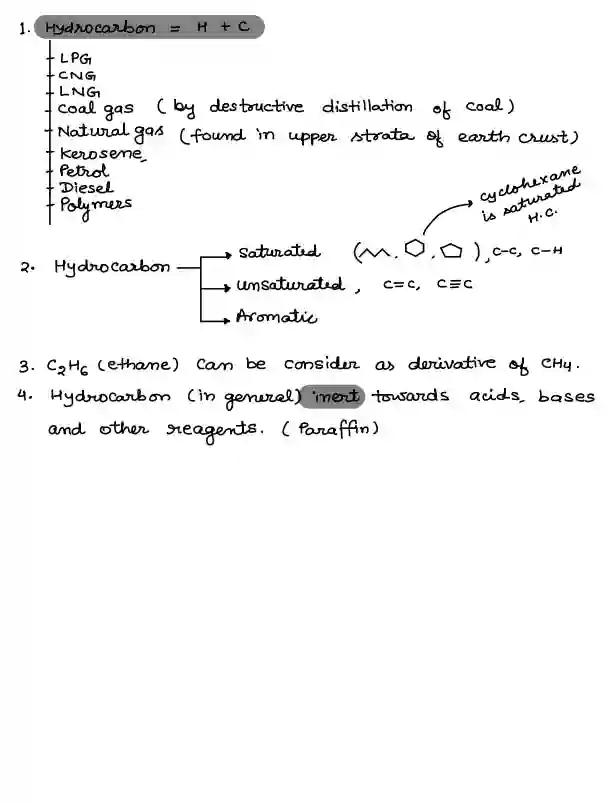 1. Hydrocarbon = H + C
LPG
CNG
LNG
Coal gas (by destructive distillation of coal)
Natural gas (found in upper strata of earth crust)
Kerosene
Petrol
Diesel
Polymers
cyclohexane
is saturated
H.C.
2. Hydrocarbon
Saturated ( , , ), C-C, C-H
Unsaturated, C=C, C≡C
Aromatic
3. C₂H₆ (ethane) can be consider as derivative of CH₄.
4. Hydrocarbon (in general) inert towards acids, bases
and other reagents. (Paraffin)